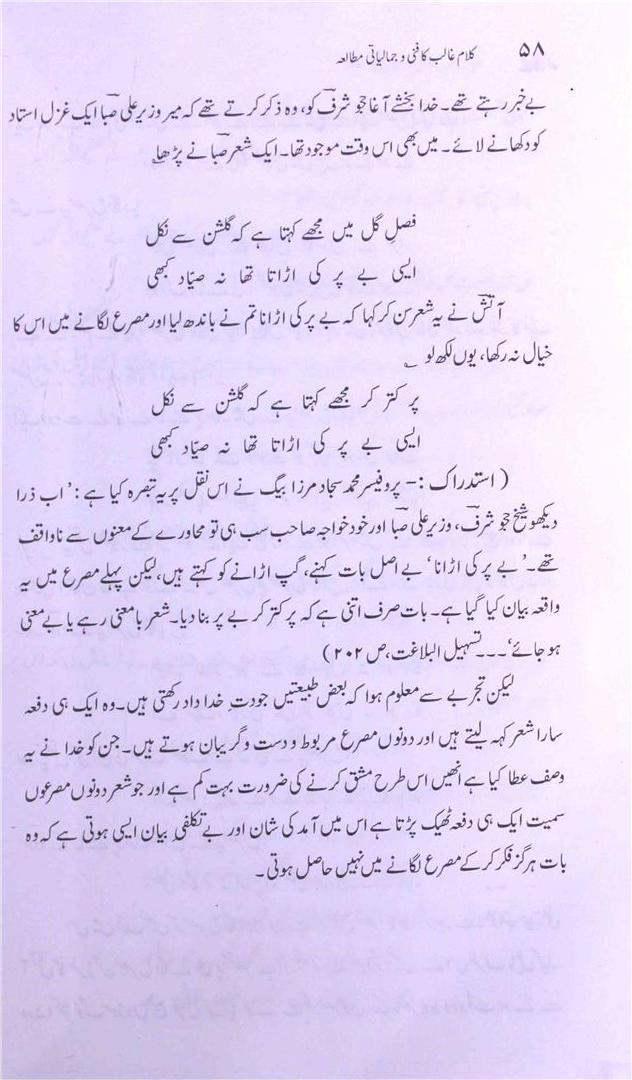 ۵۸ کلام غالب کا فنی و جمالیاتی مطالعہ
بے خبر رہتے تھے۔ خدا بخشے آغا حجو شرفؔ کو، وہ ذکر کرتے تھے کہ میر وزیر علی صباؔ ایک غزل استاد
کو دکھانے لائے۔ میں بھی اس وقت موجود تھا۔ ایک شعر صباؔ نے پڑھا؎
فصلِ گل میں مجھے کہتا ہے کہ گلشن سے نکل
ایسی بے پر کی اڑاتا تھا نہ صیّاد کبھی
آتشؔ نے یہ شعر سن کر کہا کہ بے پر کی اڑانا تم نے باندھ لیا اور مصرع لگانے میں اس کا
خیال نہ رکھا، یوں لکھ لو ؎
پر کتر کر مجھے کہتا ہے کہ گلشن سے نکل
ایسی بے پر کی اڑاتا تھا نہ صیّاد کبھی
( استدراک :- پروفیسر محمد سجاد مرزا بیگ نے اس نقل پر یہ تبصرہ کیا ہے : ’اب ذرا
دیکھو شیخ حجو شرفؔ، وزیر علی صباؔ اور خود خواجہ صاحب سب ہی تو محاورے کے معنوں سے ناواقف
تھے۔ ’بے پر کی اڑانا‘ بے اصل بات کہنے، گپ اڑانے کو کہتے ہیں، لیکن پہلے مصرع میں یہ
واقعہ بیان کیا گیا ہے۔ بات صرف اتنی ہے کہ پر کتر کر بے پر بنا دیا۔ شعر بامعنی رہے یا بے معنی
ہو جائے‘۔۔۔ تسہیل البلاغت، ص ۲۰۲)
لیکن تجربے سے معلوم ہوا کہ بعض طبیعتیں جودتِ خدا داد رکھتی ہیں۔ وہ ایک ہی دفعہ
سارا شعر کہہ لیتے ہیں اور دونوں مصرع مربوط و دست و گریبان ہوتے ہیں۔ جن کو خدا نے یہ
وصف عطا کیا ہے انھیں اس طرح مشق کرنے کی ضرورت بہت کم ہے اور جو شعر دونوں مصرعوں
سمیت ایک ہی دفعہ ٹھیک پڑتا ہے اس میں آمد کی شان اور بے تکلفی بیان ایسی ہوتی ہے کہ وہ
بات ہرگز فکر کر کے مصرع لگانے میں نہیں حاصل ہوتی۔